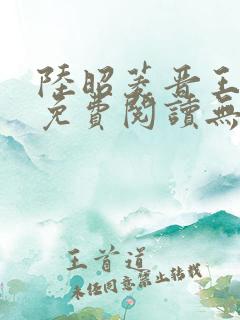 陸昭菱晋王
免費閱讀無
王首道
未经同意禁止转载